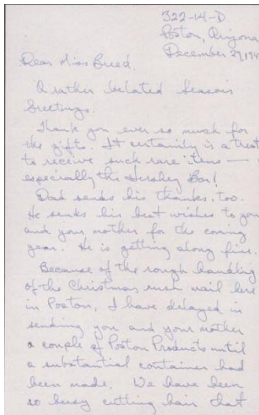 322-14-D
Poston, Arizona
December 27, 194
Dear Miss Breed,
A rather belated Season's
Greetings.
Thank you ever so much for
the gift. It certainly is a treat
to receive such rare items —
especially the Hershey Bar!
Dad sends his thanks, too.
He sends his best wishes to you
and your mother for the coming
year. He is getting along fine.
Because of the rough handling
of the Christmas rush mail here
in Poston, I have delayed in
sending you and your mother
a couple of Poston Products until
a substantial container had
been made. We have been
so busy cutting hair that